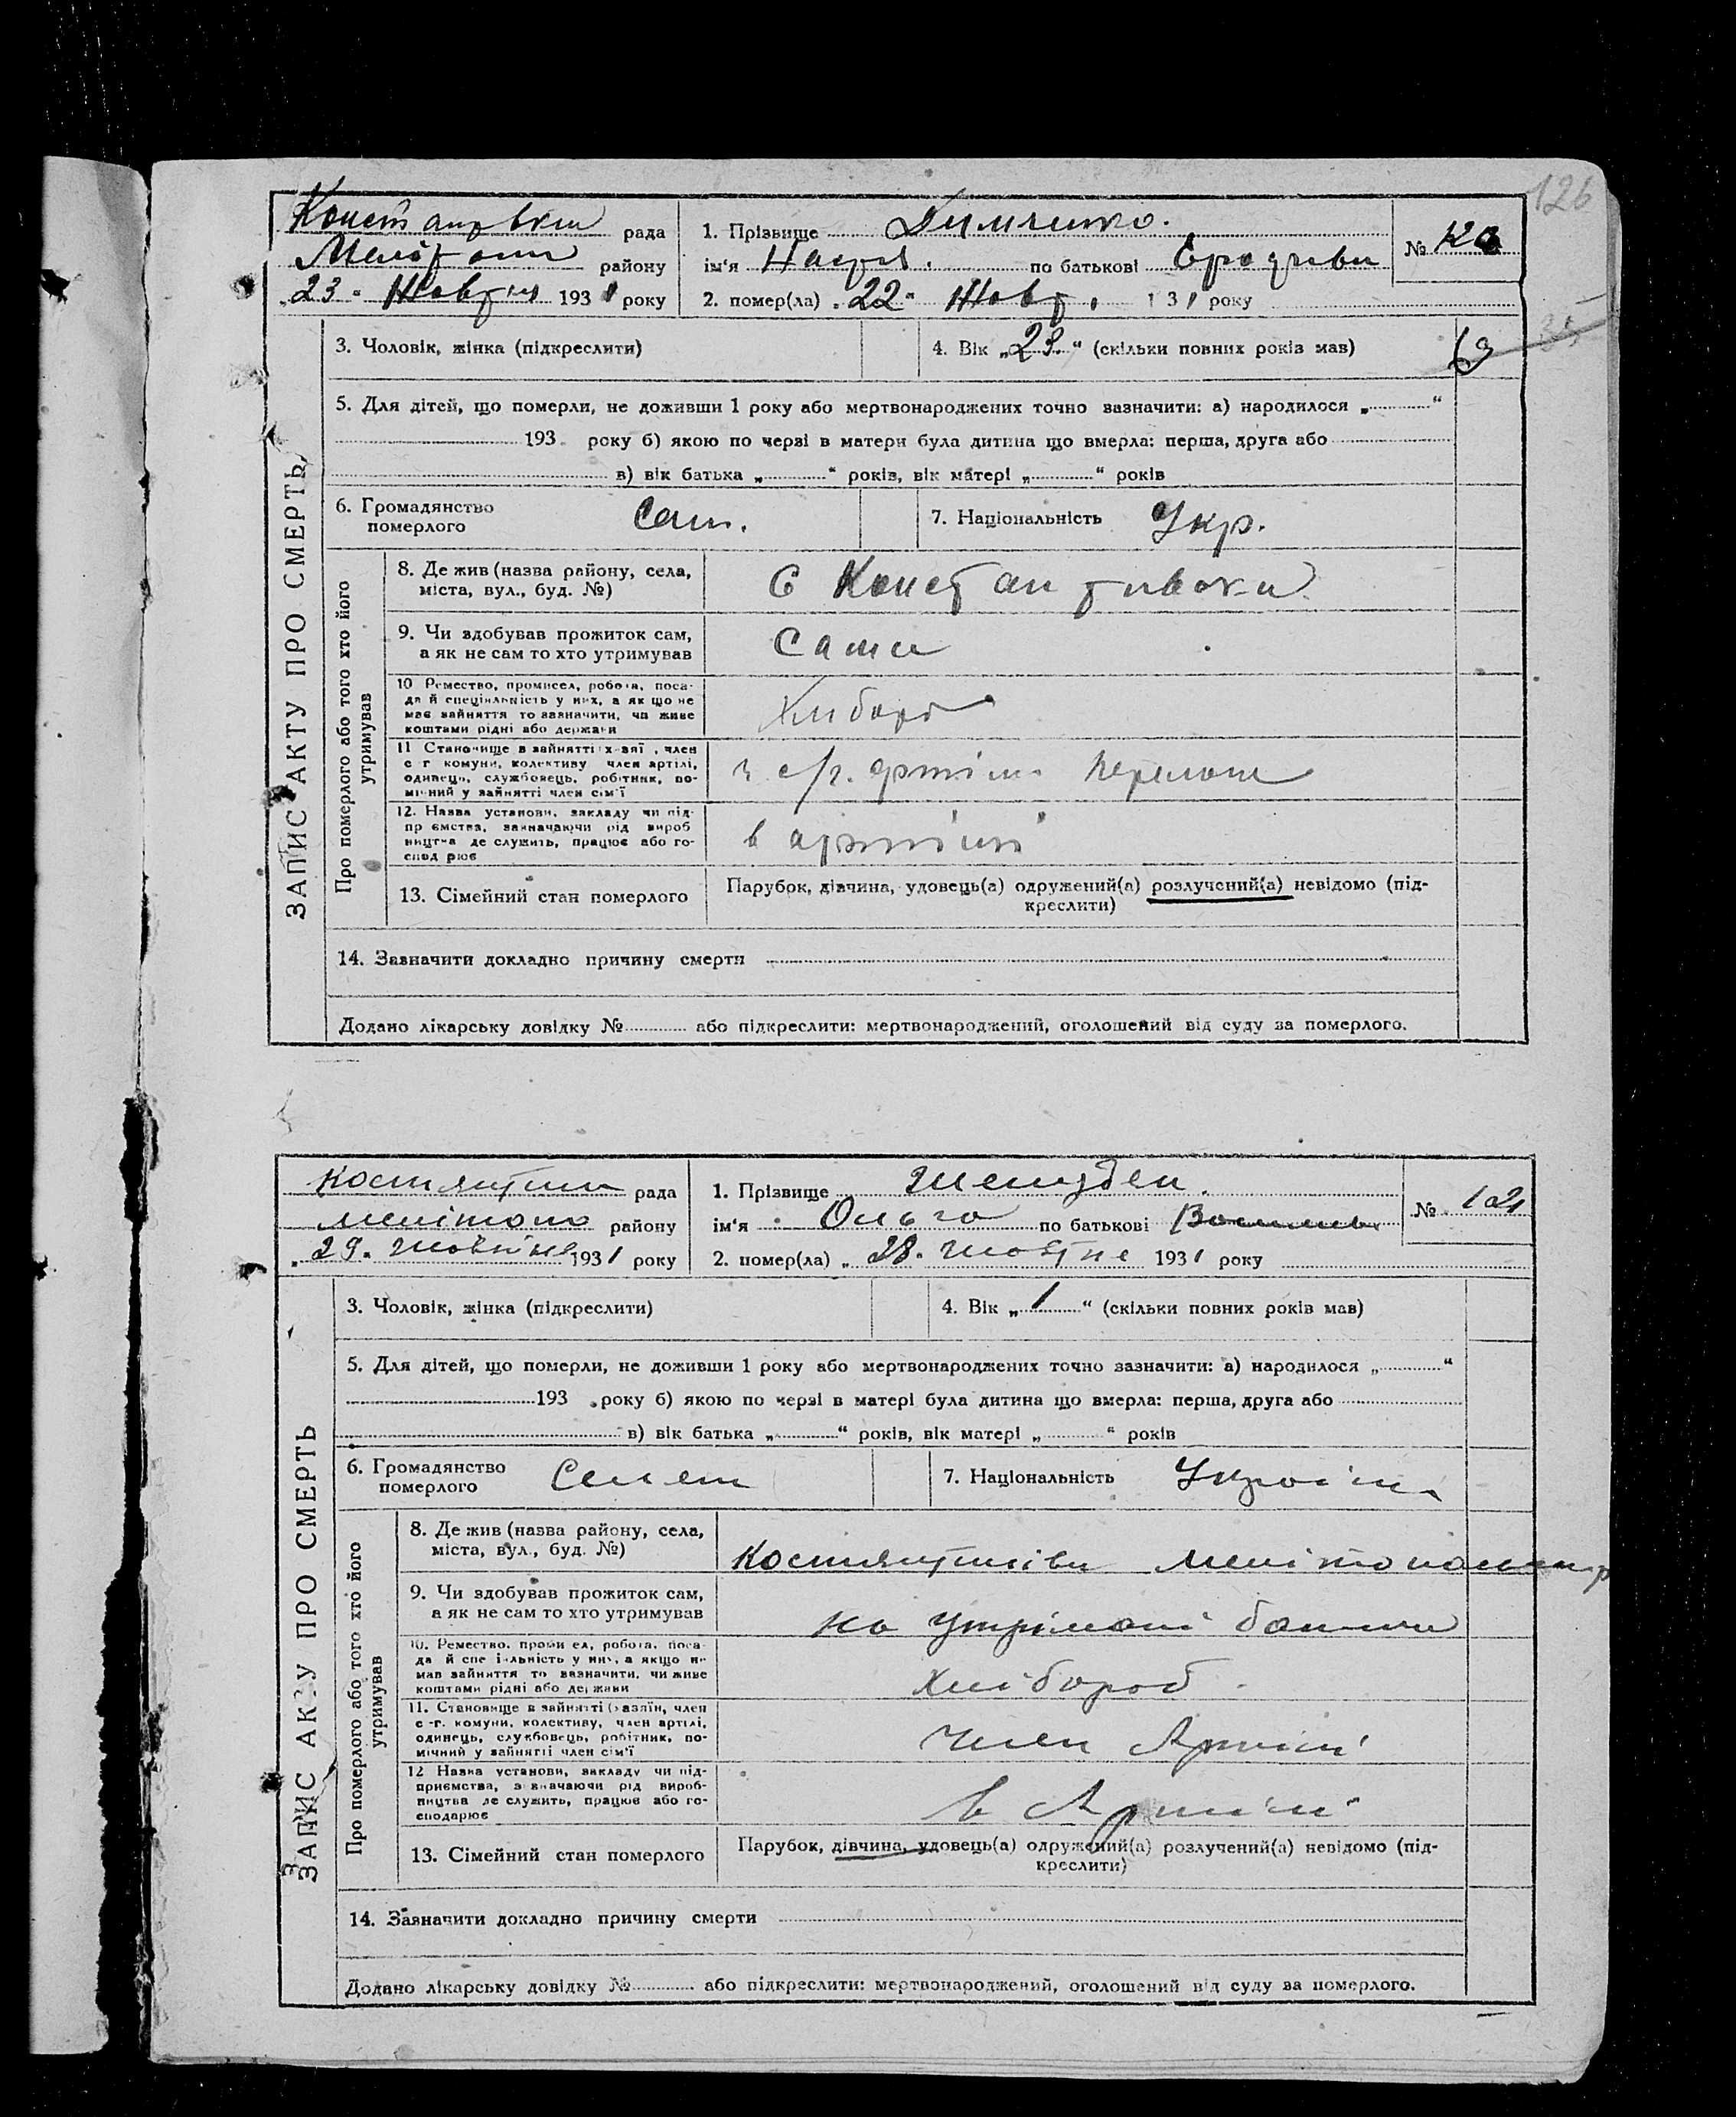 126
рада
1. Прізвище
№ 120
району
ім'я по батькові
23 Жовтня 1931 року
2. помер(ла) 22 Жовт. 31 року
3. Чоловік, жінка (підкреслити)
4. Вік „23“ (скільки повних років мав)
5. Для дітей, що померли, не доживши 1 року або мертвонароджених точно зазначити: а) народилося „ “
193 року б) якою по черзі в матери була дитина що вмерла: перша, друга або
в) вік батька „ “ років, вік матері „ “ років
6. Громадянство
померлого
7. Національність Укр.
ЗАПИС АКТУ ПРО СМЕРТЬ
Про померлого або того хто його
утримував
8. Де жив (назва району, села,
міста, вул., буд. №)
9. Чи здобував прожиток сам,
а як не сам то хто утримував
Сама
10 Ремество, промисел, робота, поса-
да й спеціяльність у них, а як що не
має зайняття то зазначити, чи живе
коштами рідні або держави
11 Становище в зайнятті х-зяї , член
с г комуни, колективу член артілі,
одинець, службовець, робітник, по-
мічний у зайнятті член сім'ї
12. Назва установи, закладу чи під-
пр ємства, зазначаючи рід вироб
ництва де служить, працює або го-
спод рює
в артілі
13. Сімейний стан померлого
Парубок, дівчина, удовець(а) одружений(а) розлучений(а) невідомо (під-
креслити)
14. Зазначити докладно причину смерти
Додано лікарську довідку № або підкреслити: мертвонароджений, оголошений від суду за померлого.
рада
1. Прізвище
№ 121
району
ім'я Ольга по батькові
29. Жовтня 1931 року
2. помер(ла) „ 28. Жовтне 1931 року
3. Чоловік, жінка (підкреслити)
4. Вік „1“ (скільки повних років мав)
5. Для дітей, що померли, не доживши 1 року або мертвонароджених точно зазначити: а) народилося „ “
193 року б) якою по черзі в матері була дитина що вмерла: перша, друга або
в) вік батька „ “ років, вік матері „ “ років
6. Громадянство
померлого
7. Національність
ЗАПИС АКТУ ПРО СМЕРТЬ
Про померлого або того хто його
утримував
8. Де жив (назва району, села,
міста, вул., буд. №)
9. Чи здобував прожиток сам,
а як не сам то хто утримував
на утрімані
10. Ремество, проми ел, робота, поса-
да й спе іяльність у них, а якщо н
має зайняття то зазначити, чи живе
коштами рідні або держави
Хлібороб
11. Становище в зайнятті (хазяїн, член
с -г. комуни, колективу, член артілі,
одинець, службовець, робітник, по-
мічний у зайнятті член сім'ї
член Артілі
12 Назва установи, закладу чи під-
приємства, зазначаючи рід вироб-
ництва де служить, працює або го-
сподарює
в Артілі
13. Сімейний стан померлого
Парубок, дівчина, удовець(а) одружений(а) розлучений(а) невідомо (під-
креслити)
14. Зазначити докладно причину смерти
Додано лікарську довідку № або підкреслити: мертвонароджений, оголошений від суду за померлого.